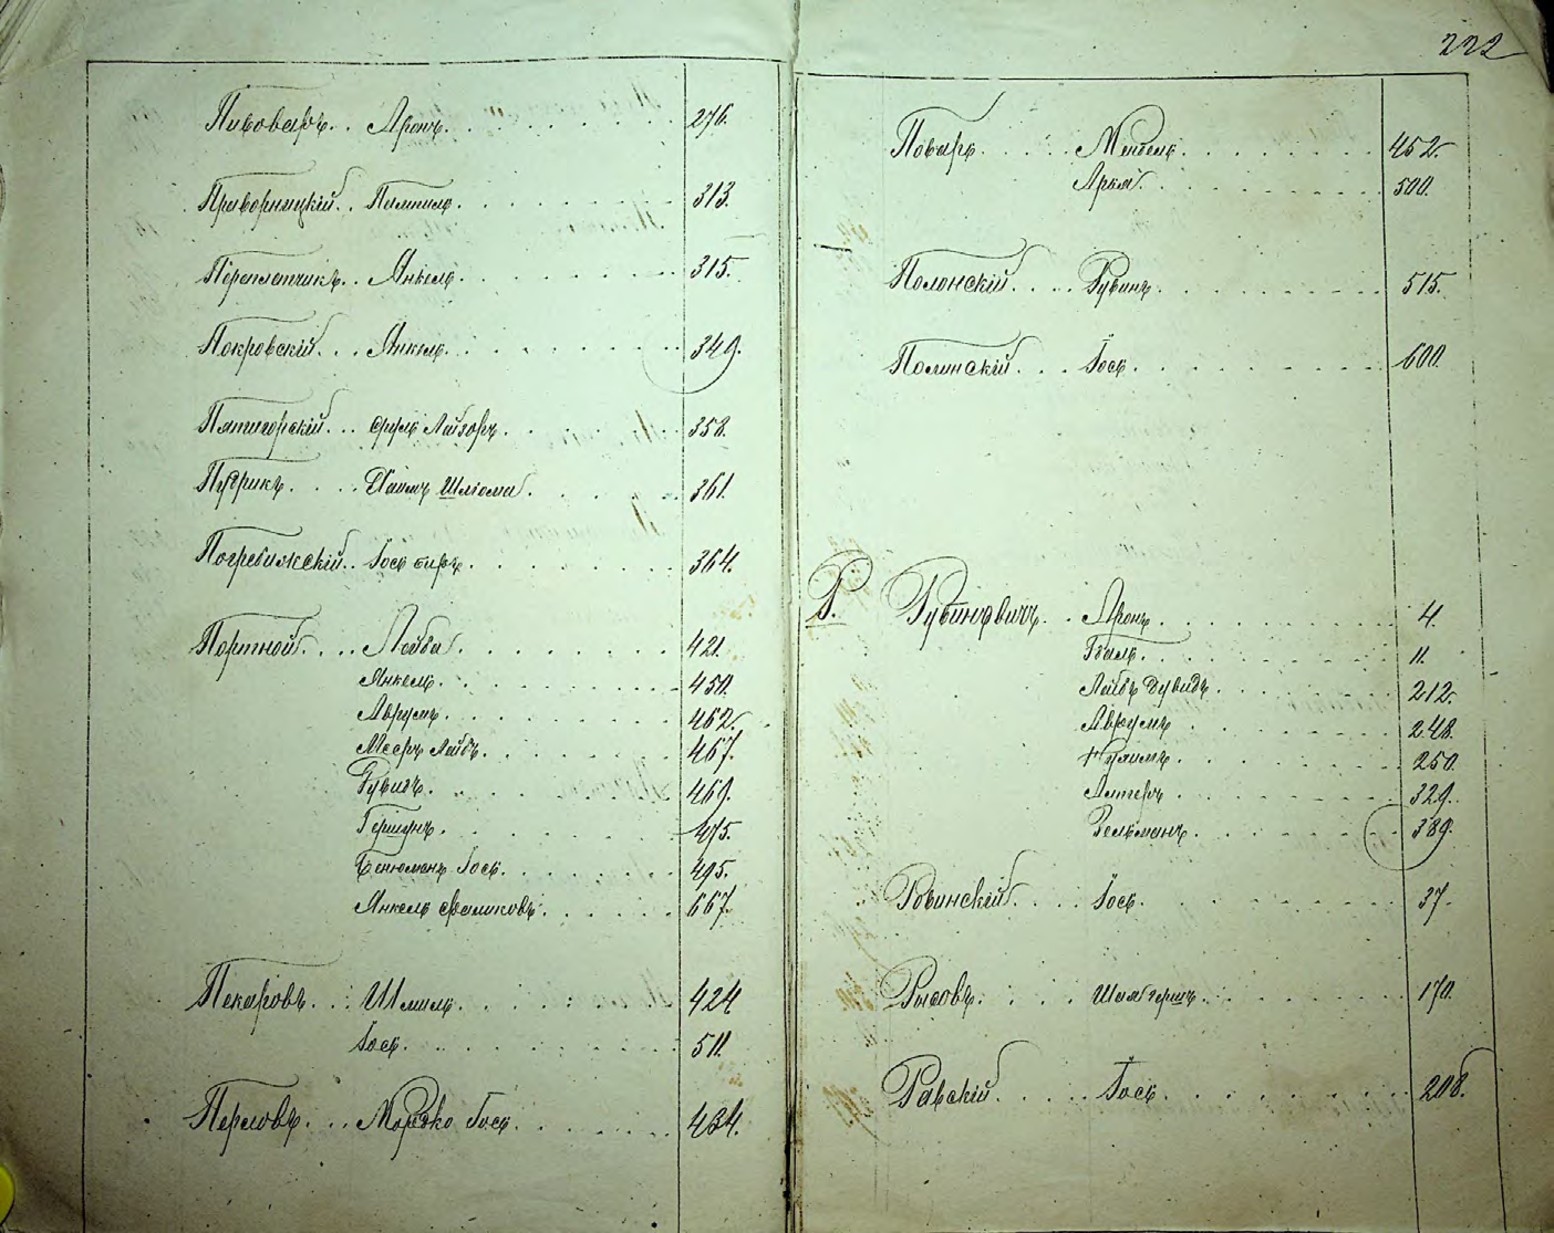 Пивоваръ. . Аронъ. 276.
Приворницкій. . 313.
Переплетчикъ. . Янкель. 315.
Покровскій. . . Янкель. 349.
Пятигорскій. . . Сруль Лайзоръ. 358.
Пудрикъ. . . . Хаимъ Шлиома. 361.
Погребижскій. . Іось Беръ. 364.
Портной. . . . Лейба. 421.
Янкель. 450.
Аврумъ. 462.
Мееръ Лейбъ. 467.
Рувинъ. 469.
Гершунъ. 475.
Бенюменъ Іось. 495.
Янкель Фроликовъ. 667.
Пекаровъ. . . Шмиль. 424
Іось. 511.
Перловъ. . . Мордко Іось. 434.
222
Поваръ. . . . Мендель. 452.
Аріа. 500.
Полонскій. . . . Рувинъ. 515.
Полинскій. . . Іось. 600.
Р. Рубиновичъ. . Аронъ. 4.
11.
Лейбъ Дувидъ. 212.
Аврумъ. 248.
Нухимъ. 250.
Алтеръ. 329.
Зельманъ. 389.
Ровинскій. . . . Іось. 37.
Рысовъ. . . . Шая Гершъ. 170.
Равскій. . . . Іось. 208.